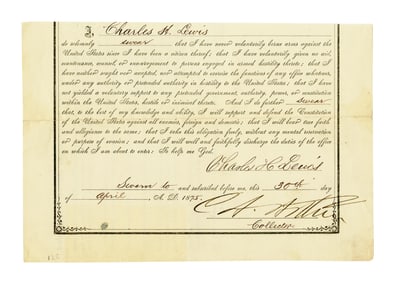 I, Charles H. Lewis
do solemnly swear that I have never voluntarily borne arms against the
United States since I have been a citizen thereof; that I have voluntarily given no aid,
countenance, counsel, or encouragement to persons engaged in armed hostility thereto; that I
have neither sought nor accepted, nor attempted to exercise the functions of any office whatever,
under any authority or pretended authority in hostility to the United States; that I have
not yielded a voluntary support to any pretended government, authority, power, or constitution
within the United States, hostile or inimical thereto. And I do further swear
that, to the best of my knowledge and ability, I will support and defend the Constitution
of the United States against all enemies, foreign and domestic; that I will bear true faith
and allegiance to the same; that I take this obligation freely, without any mental reservation
or purpose of evasion; and that I will well and faithfully discharge the duties of the office
on which I am about to enter: So help me God.
Charles H Lewis
Sworn to and subscribed before me, this 30th day
of April, A. D. 1875.
Collector